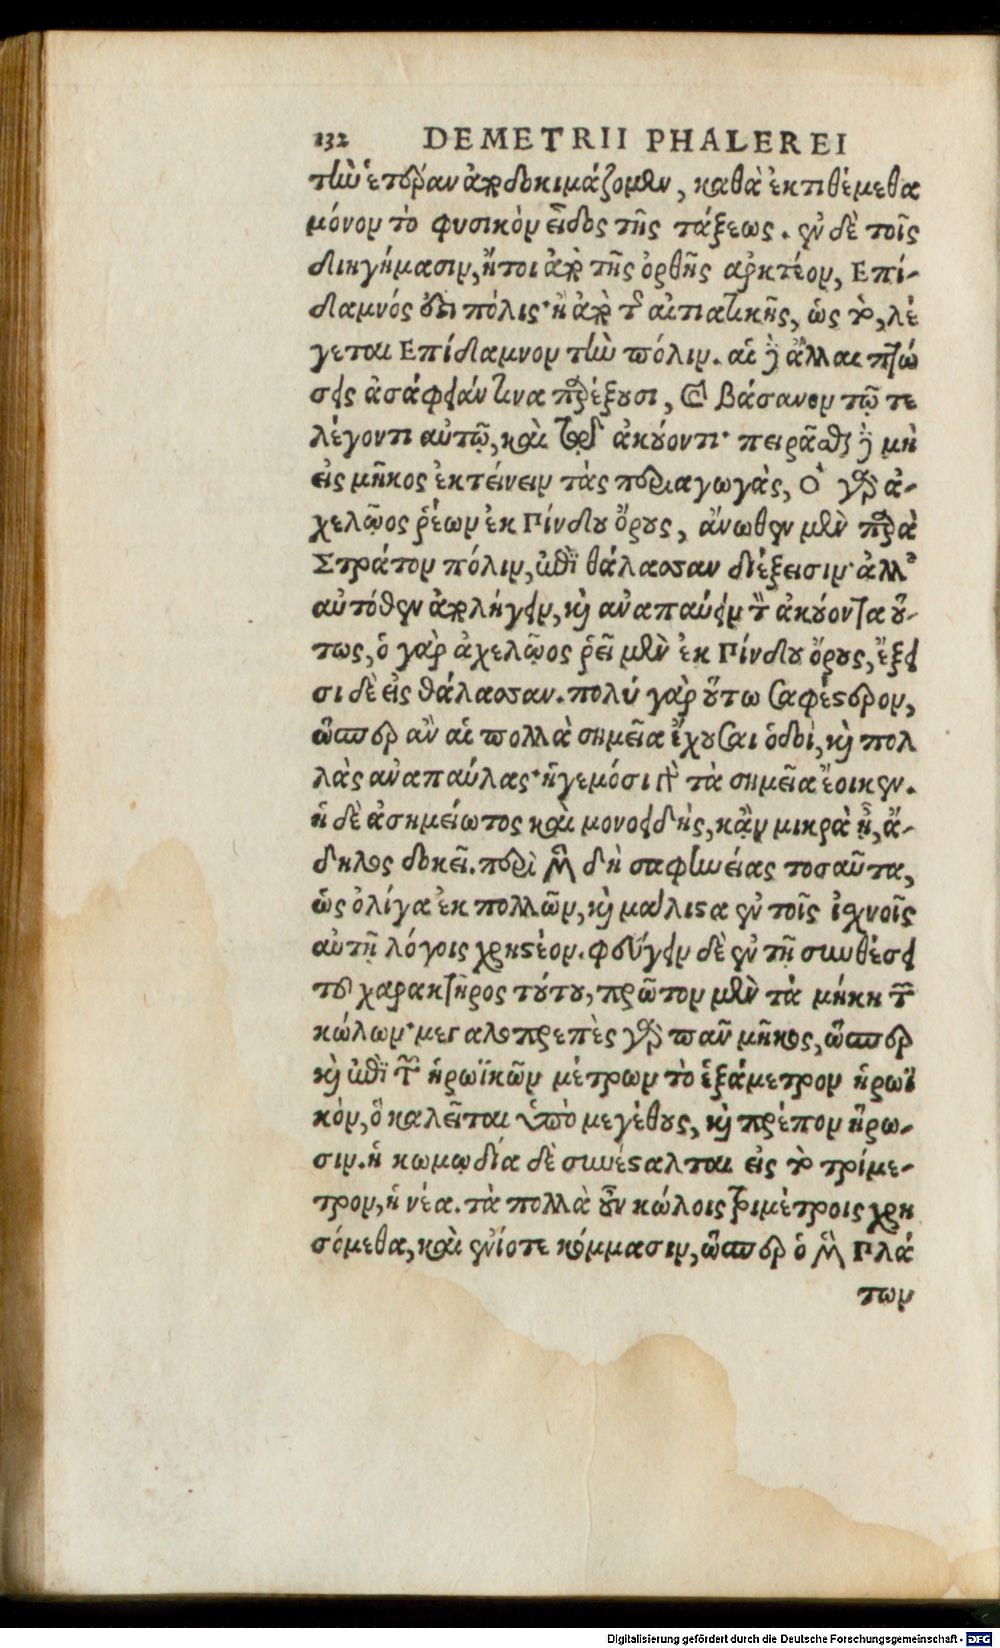 132 DEMETRII PHALEREI
τὴν ἑτέραν ἀποδοκιμάζομεν, καθὰ ἐκτιθέμεθα
μόνον τὸ φυσικὸν εἶδος τῆς τάξεως. ἐν δὲ τοῖς
διηγήμασιν, ἤτοι ἀπὸ τῆς ὀρθῆς ἀρκτέον, Επί-
δαμνός ἐστι πόλις· ἢ ἀπὸ τῆς αἰτιατικῆς, ὡς τὸ, λέ
γεται Επίδαμνον τὴν πόλιν. αἱ δὲ ἄλλαι πτώ
σεις ἀσάφειάν τινα παρέξουσι, καὶ βάσανον τῷ τε
λέγοντι αὐτῷ, καὶ τῷ ἀκούοντι· πειρᾶσθαι δὲ μὴ
εἰς μῆκος ἐκτείνειν τὰς περιαγωγὰς, Ο γὰρ ἀ-
χελῷος ῥέων ἐκ Πίνδου ὄρους, ἄνωθεν μὲν παρὰ
Στράτον πόλιν, ἐπὶ θάλασσαν διέξεισιν· ἀλλ'
αὐτόθεν ἀπολήγειν, καὶ ἀναπαύειν τὸν ἀκούοντα οὕ-
τως, ὁ γὰρ ἀχελῷος ῥεῖ μὲν ἐκ Πίνδου ὄρους, ἔξει
σι δὲ εἰς θάλασσαν. πολὺ γὰρ οὕτω σαφέστερον,
ὥσπερ ἂν αἱ πολλὰ σημεῖα ἔχουσαι ὁδοὶ, καὶ πολ
λὰς ἀναπαύλας· ἡγεμόσι γὰρ τὰ σημεῖα ἔοικεν.
ἡ δὲ ἀσημείωτος καὶ μονοειδὴς, κἂν μικρὰ ᾖ, ἄ-
δηλος δοκεῖ. περὶ μὲν δὴ σαφηνείας τοσαῦτα,
ὡς ὀλίγα ἐκ πολλῶν, καὶ μάλιστα ἐν τοῖς ἰχνοῖς
αὐτῇ λόγοις χρηστέον. φεύγειν δὲ ἐν τῇ συνθέσει
τοῦ χαρακτῆρος τούτου, πρῶτον μὲν τὰ μήκη τῶν
κώλων· μεγαλοπρεπὲς γὰρ πᾶν μῆκος, ὥσπερ
καὶ ἐπὶ τῶν ἡρωϊκῶν μέτρων τὸ ἑξάμετρον ἡρωϊ
κὸν, ὃ καλεῖται ὑπὸ μεγέθους, καὶ πρέπον ἥρω-
σιν. ἡ κωμῳδία δὲ συνέσταλται εἰς τὸ τρίμε-
τρον, ἡ νέα. τὰ πολλὰ οὖν κώλοις τριμέτροις χρη
σόμεθα, καὶ ἐνίοτε κόμμασιν, ὥσπερ ὁ μὲν Πλά
των
Digitalisierung gefördert durch die Deutsche Forschungsgemeinschaft - DFG